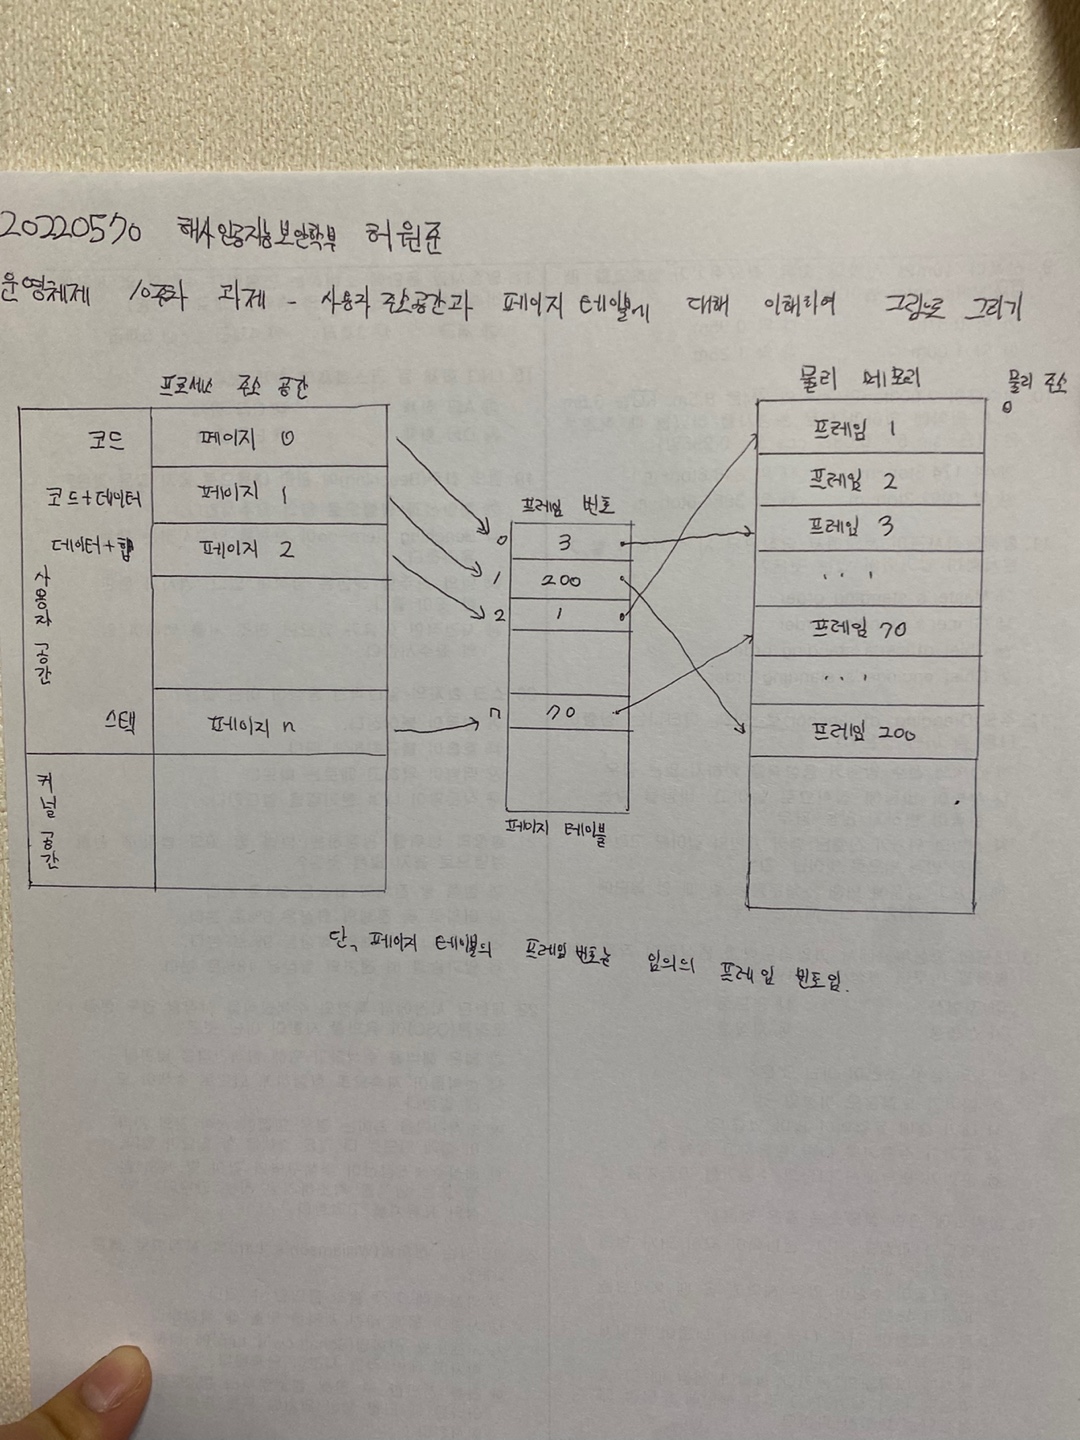 20220570 해사인공지능보안학부 허원준
운영체제 10주차 과제 - 사용자 주소공간과 페이지 테이블에 대해 이해하여 그림으로 그리기
프로세스 주소 공간
코드 페이지 0
코드+데이터 페이지 1
데이터+힙 페이지 2
사용자 공간
스택 페이지 n
커널 공간
프레임 번호
0 3
1 200
2 1
n 70
페이지 테이블
물리 메모리 물리 주소
0
프레임 1
프레임 2
프레임 3
...
프레임 70
...
프레임 200
단, 페이지 테이블의 프레임 번호는 임의의 프레임 번호임.